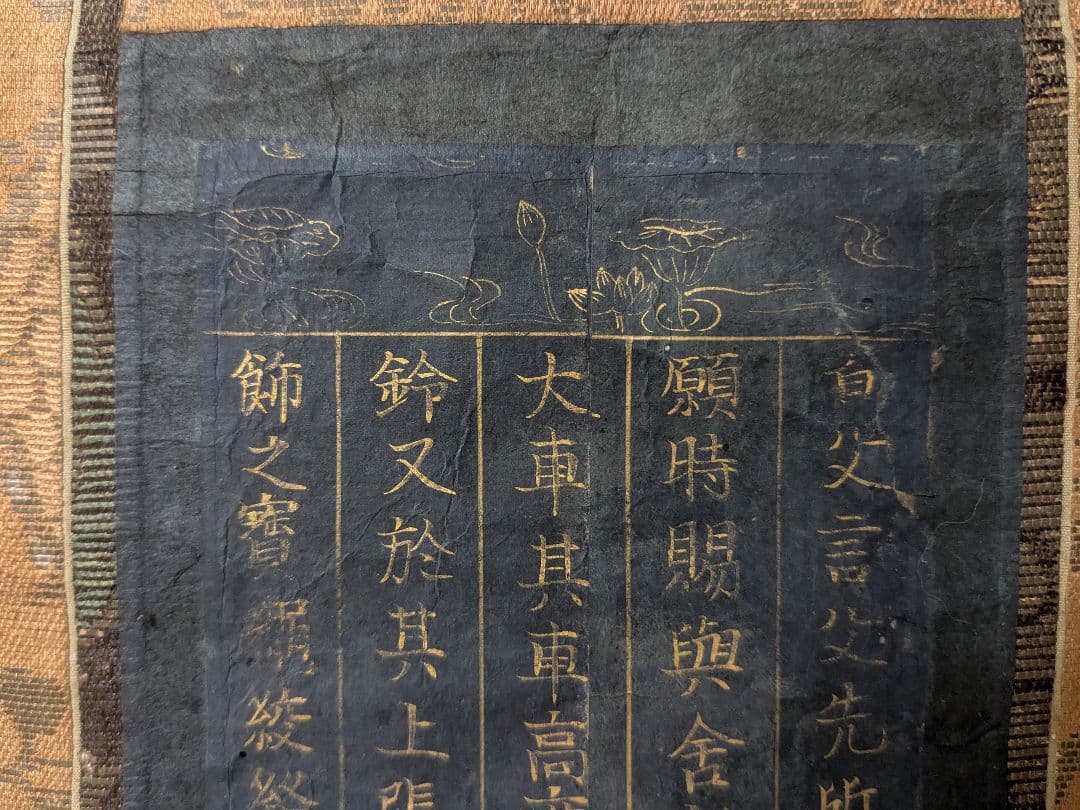 白父言父先所
願時賜與舍
大車其車高
鈴又於其上張
飾之寶繩絞絡